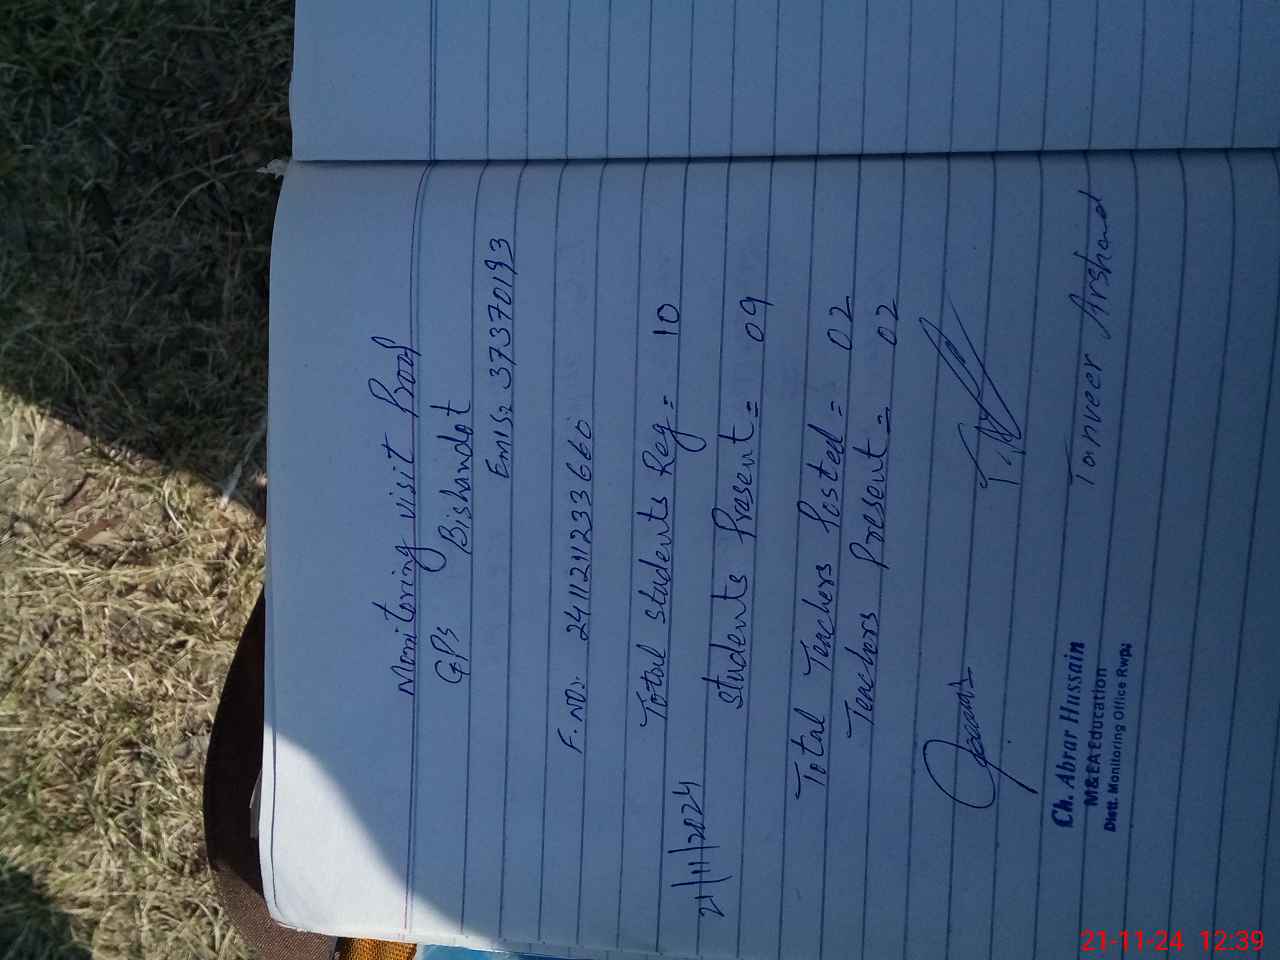 Monitoring visit Proof
GPS Bishandot
Emis: 37370193
F.No: 2411211233660
Total Students Reg = 10
21/11/2024
Students Present = 09
Total Teachers Posted = 02
Teachers Present = 02
Ch. Abrar Hussain
M&EA Education
Distt. Monitoring Office Rwps
Tanveer Arshad
21-11-24 12:39